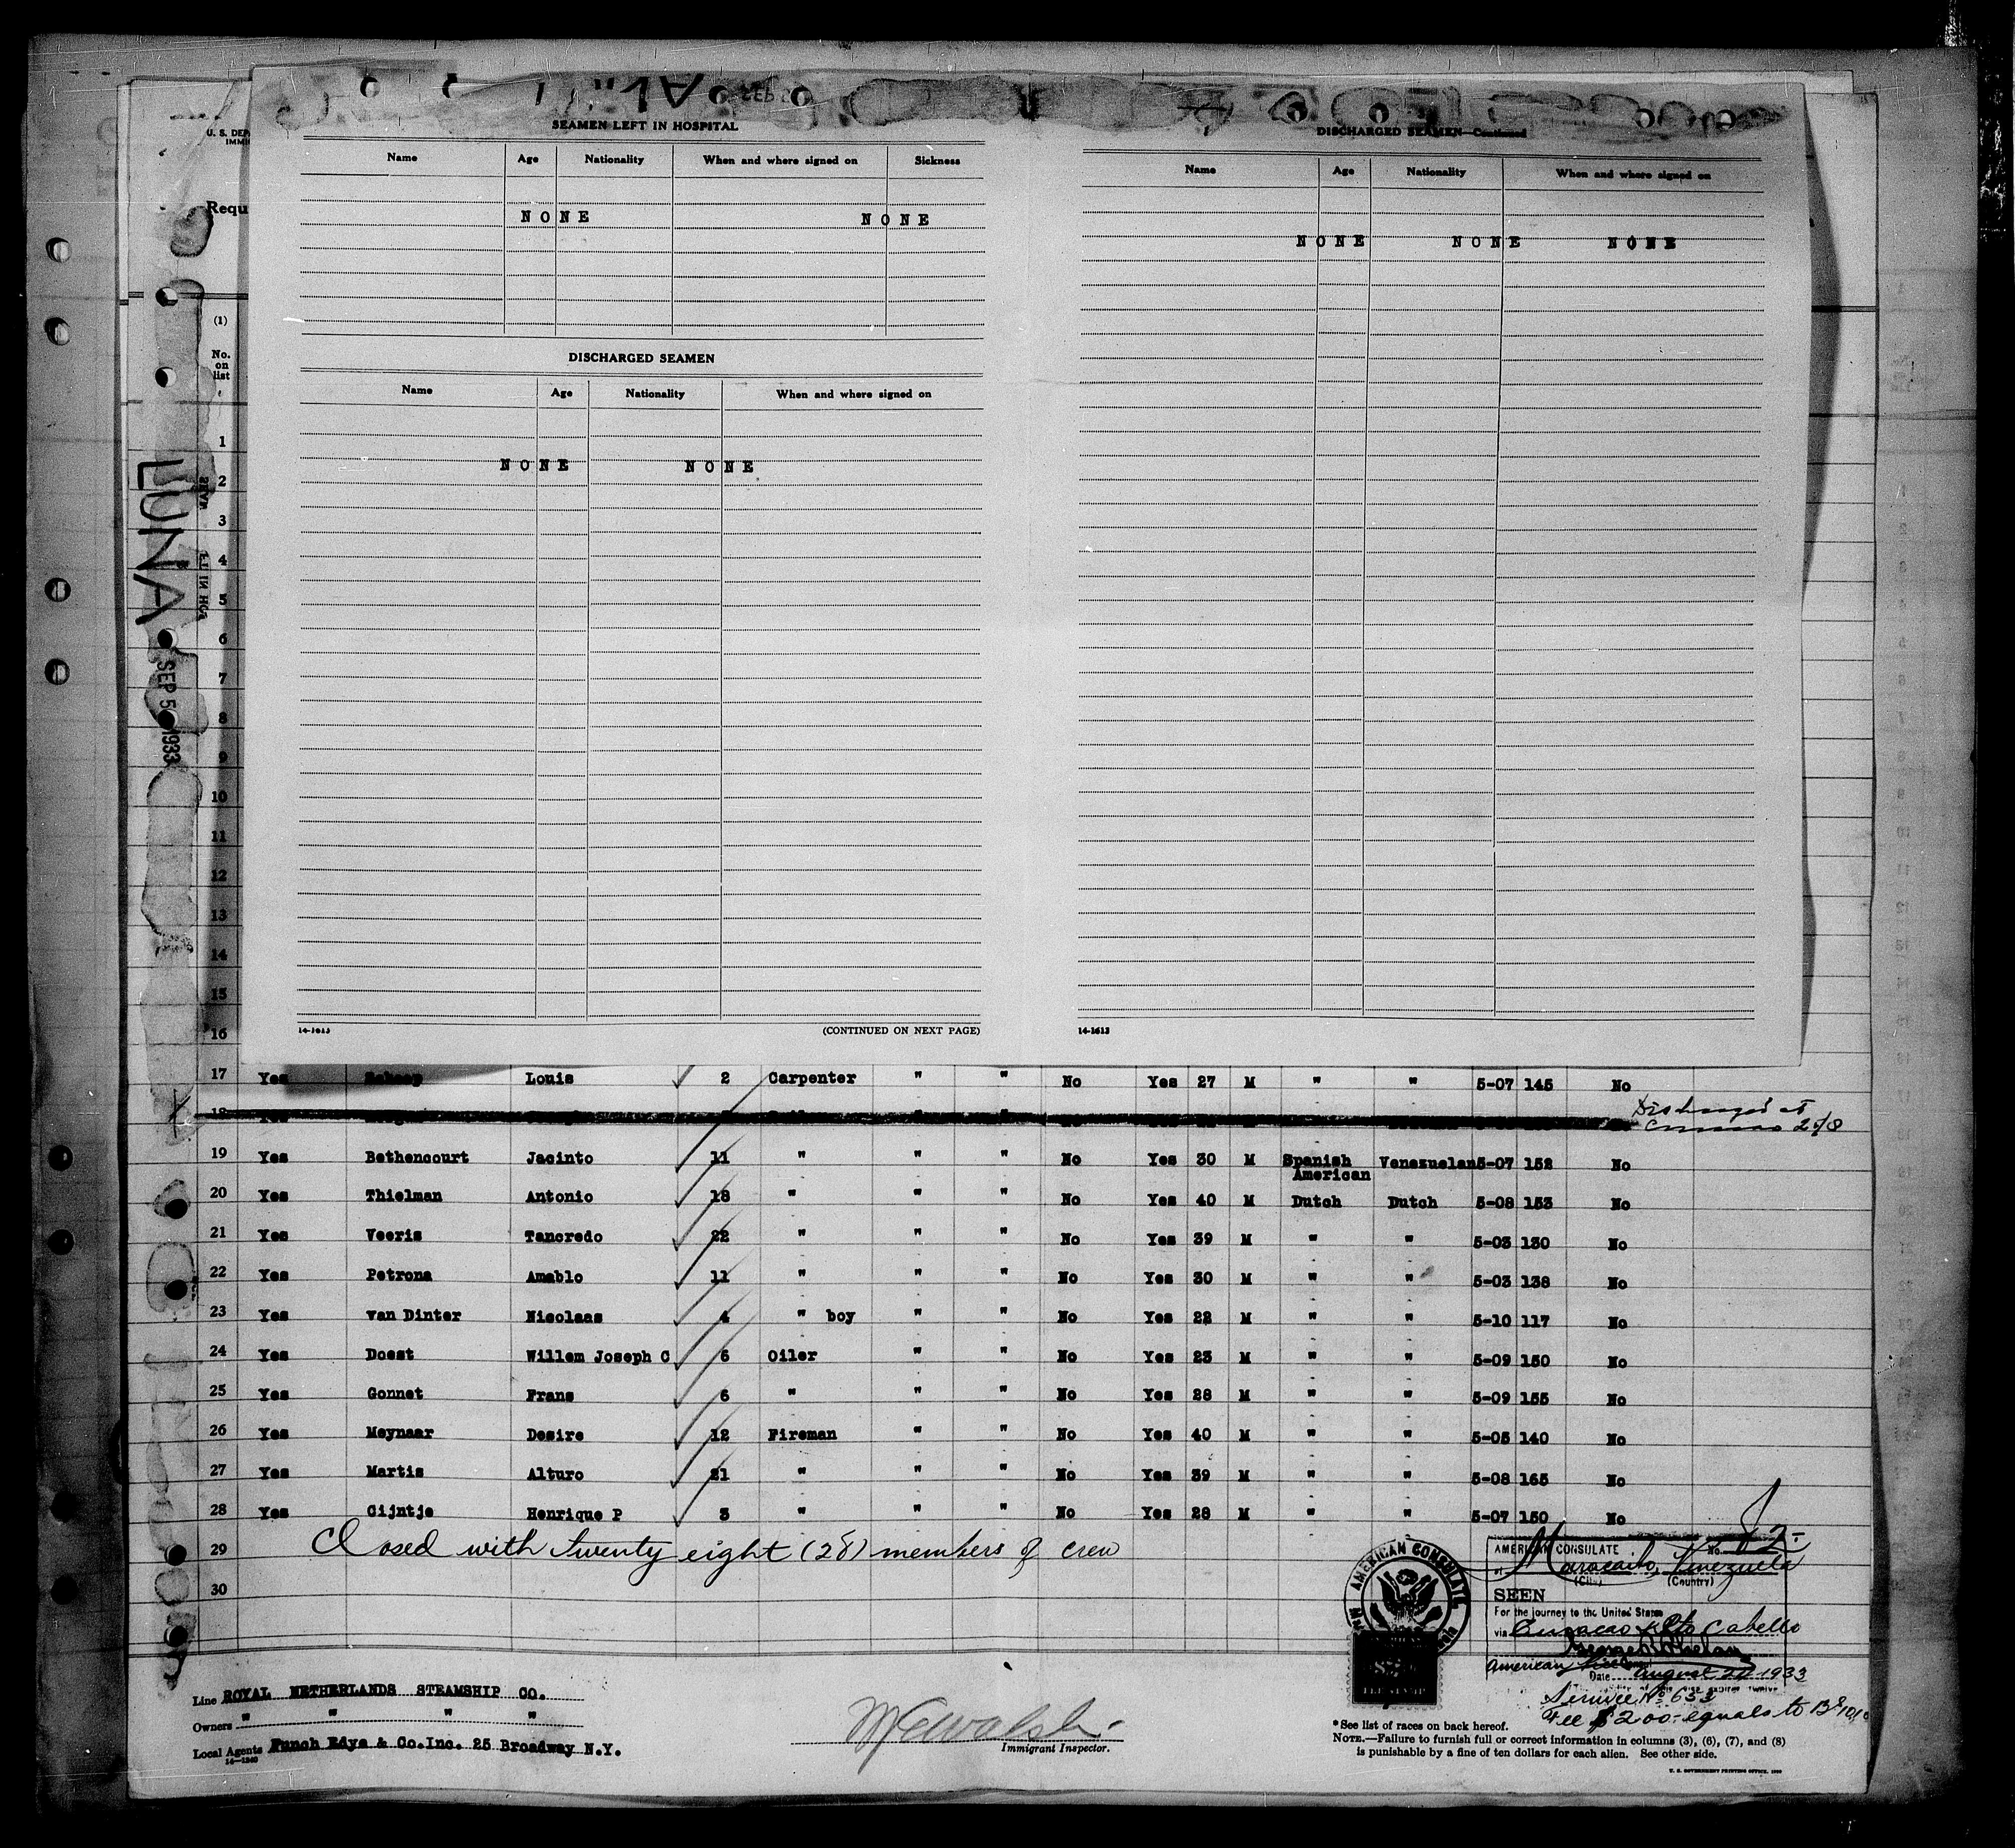 SEAMEN LEFT IN HOSPITAL
Name Age Nationality When and where signed on Sickness
NONE NONE
DISCHARGED SEAMEN
Name Age Nationality When and where signed on
NONE NONE
14-1613 (CONTINUED ON NEXT PAGE)
DISCHARGED SEAMEN—Continued
Name Age Nationality When and where signed on
NONE NONE NONE
14-1613
U. S. DEP
IMMI
Requ
(1)
No.
on
list
LUNA
SEP 5 1933
1
2
3
4
5
6
7
8
9
10
11
12
13
14
15
16
17 Yes Louis 2 Carpenter " " No Yes 27 M " " 5-07 145 No
18 Discharged at
19 Yes Bethencourt Jacinto 11 " " " No Yes 30 M Spanish American Venezuelan 5-07 152 No
20 Yes Thielman Antonio 18 " " " No Yes 40 M Dutch Dutch 5-08 153 No
21 Yes Veeris Tancredo 22 " " " No Yes 39 M " " 5-03 130 No
22 Yes Petrona Amablo 11 " " " No Yes 30 M " " 5-03 138 No
23 Yes van Dinter Nicolaas 4 " boy " " No Yes 22 M " " 5-10 117 No
24 Yes Doest Willem Joseph C 6 Oiler " " No Yes 23 M " " 5-09 150 No
25 Yes Gonnet Frans 6 " " " No Yes 28 M " " 5-09 155 No
26 Yes Meynaar Desire 12 Fireman " " No Yes 40 M " " 5-05 140 No
27 Yes Martis Alturo 21 " " " No Yes 39 M " " 5-08 165 No
28 Yes Gijntje Henrique P 3 " " " No Yes 28 M " " 5-07 150 No
29 Closed with twenty eight (28) members of crew
30
AMERICAN CONSULATE No.
at Maracaibo, Venezuela
(City) (Country)
SEEN
For the journey to the United States
via Curacao & Pto Cabello
American Vice Consul
Date August 24 1933
Service No 633
Fee $2.00 equals to Bs
AMERICAN CONSULATE
Line ROYAL NETHERLANDS STEAMSHIP CO.
Owners " " " "
Local Agents Funch Edye & Co.Inc. 25 Broadway N.Y.
14-1240
Immigrant Inspector.
*See list of races on back hereof.
NOTE.—Failure to furnish full or correct information in columns (3), (6), (7), and (8)
is punishable by a fine of ten dollars for each alien. See other side.
U. S. GOVERNMENT PRINTING OFFICE